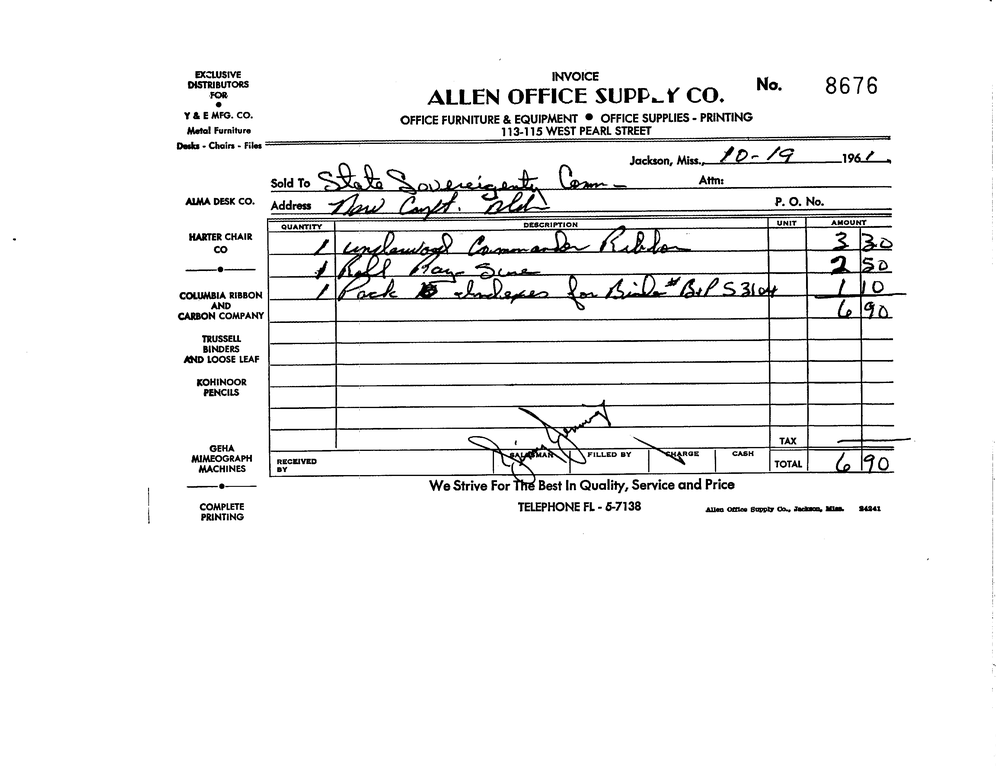 EXCLUSIVE
DISTRIBUTORS
FOR
Y & E MFG. CO.
Metal Furniture
Desks - Chairs - Files
ALMA DESK CO.
HARTER CHAIR
CO
COLUMBIA RIBBON
AND
CARBON COMPANY
TRUSSELL
BINDERS
AND LOOSE LEAF
KOHINOOR
PENCILS
GEHA
MIMEOGRAPH
MACHINES
COMPLETE
PRINTING
INVOICE
ALLEN OFFICE SUPPLY CO.
No. 8676
OFFICE FURNITURE & EQUIPMENT ● OFFICE SUPPLIES - PRINTING
113-115 WEST PEARL STREET
Jackson, Miss., 10-19 1961.
Sold To State Sovereigenty Comm- Attn:
Address New Capt. Bld P. O. No.
QUANTITY DESCRIPTION UNIT AMOUNT
1 underwood Commander Ribbon 3 30
1 Roll 2 50
1 Pack Indexes for Binder # B&P S3104 1 10
6 90
TAX
RECEIVED BY SALESMAN FILLED BY CHARGE CASH TOTAL 6 90
We Strive For The Best In Quality, Service and Price
TELEPHONE FL - 5-7138 Allen Office Supply Co., Jackson, Miss. 24241